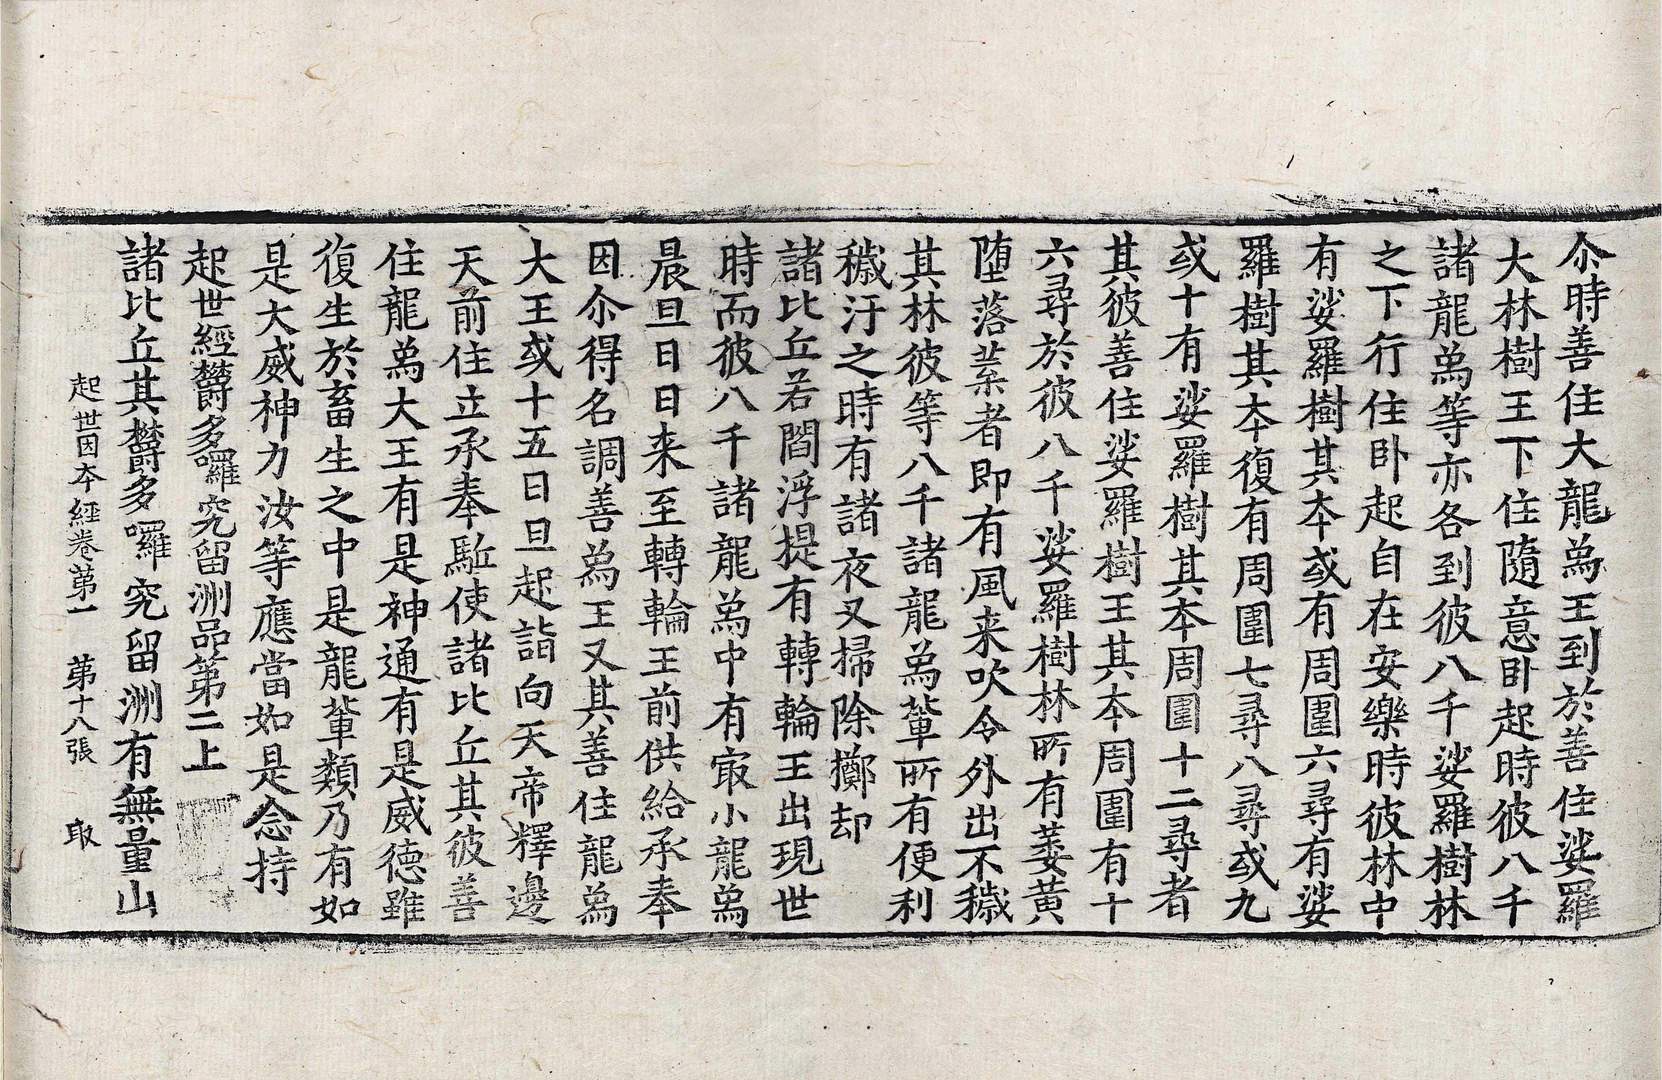 尒時善住大龍爲王到於善住娑羅
大林樹王下住隨意卧起時彼八千
諸龍爲等亦各到彼八千娑羅樹林
之下行住卧起自在安樂時彼林中
有娑羅樹其本或有周圍六尋有娑
羅樹其本復有周圍七尋八尋或九
或十有娑羅樹其本周圍十二尋者
其彼善住娑羅樹王其本周圍有十
六尋於彼八千娑羅樹林所有萎黄
堕落葉者即有風来吹令外出不穢
其林彼等八千諸龍爲輩所有便利
穢汙之時有諸夜叉掃除擲却
諸比丘若閻浮提有轉輪王出現世
時而彼八千諸龍爲中有㝡小龍爲
晨旦日日来至轉輪王前供給承奉
因尒得名調善爲王又其善住龍爲
大王或十五日旦起詣向天帝釋邊
天前住立承奉駈使諸比丘其彼善
住龍爲大王有是神通有是威德雖
復生於畜生之中是龍輩類乃有如
是大威神力汝等應當如是念持
起世經欝多囉究留洲品第二上
諸比丘其欝多囉究留洲有無量山
起世因本經卷第一 第十八張 取